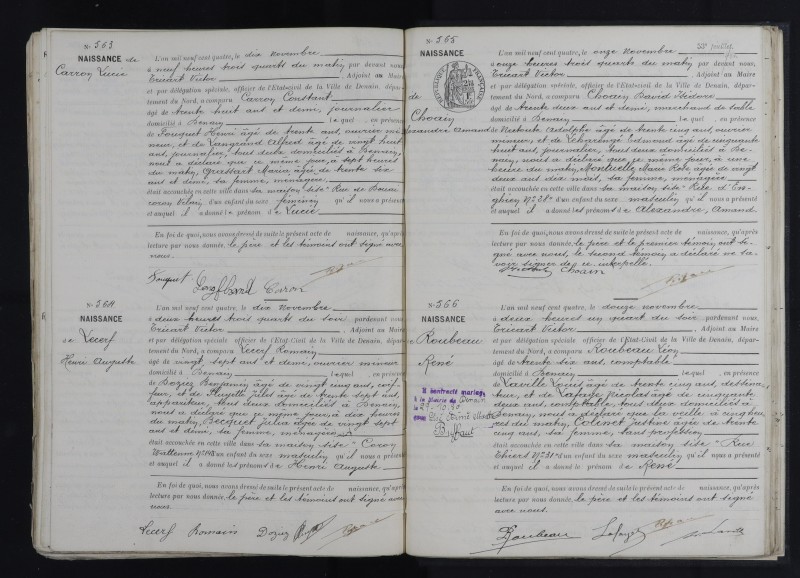 N° 563
NAISSANCE de
Carron Lucie
L'an mil neuf cent quatre, le dix novembre
à neuf heures trois quarts du matin par devant nous,
Tricart Victor, Adjoint au Maire
et par délégation spéciale, officier de l'Etat-civil de la Ville de Denain, dépar-
tement du Nord, a comparu Carron Constant
âgé de trente huit ans et demi, journalier
domicilié à Denain lequel, en présence
de Fouquet Henri âgé de trente ans, ouvrier mi-
neur, et de Alfred âgé de vingt huit
ans, journalier, tous deux domiciliés à Denain,
nous a déclaré que ce même jour, à sept heures
du matin, Grattart Maria âgée de trente six
ans et demi, sa femme, ménagère
était accouchée en cette ville dans sa maison sise Rue de
d'un enfant du sexe féminin qu'il nous a présenté
et auquel il a donné le prénom de Lucie
En foi de quoi, nous avons dressé de suite le présent acte de naissance, qu'après
lecture par nous donnée, le père et les témoins ont signé avec
nous.
Fouquet
N° 564
NAISSANCE
de Lecerf
Henri Auguste
L'an mil neuf cent quatre, le dix novembre
à deux heures trois quarts du soir, pardevant nous,
Tricart Victor, Adjoint au Maire
et par délégation spéciale officier de l'Etat-Civil de la Ville de Denain, dépar-
tement du Nord, a comparu Lecerf Romain
âgé de vingt sept ans et demi, ouvrier mineur
domicilié à Denain lequel, en présence
de Doziez Benjamin âgé de vingt cinq ans, coif-
feur, et de Jules âgé de trente sept ans,
appariteur, tous deux domiciliés à Denain,
nous a déclaré que ce même jour, à dix heures
du matin, Becquet Julia âgée de vingt sept
ans et demi, sa femme, ménagère
était accouchée en cette ville dans sa maison sise Coron
d'un enfant du sexe masculin qu'il nous a présenté
et auquel il a donné les prénoms de Henri Auguste
En foi de quoi, nous avons dressé de suite le présent acte de naissance, qu'après
lecture par nous donnée, le père et les témoins ont signé avec
nous.
Lecerf Romain Doziez
N° 565
NAISSANCE
de
Choain
Alexandre Amand
L'an mil neuf cent quatre, le onze novembre
à onze heures trois quarts du matin par devant nous,
Tricart Victor, Adjoint au Maire
et par délégation spéciale, officier de l'Etat-civil de la Ville de Denain, dépar-
tement du Nord, a comparu Choain David Isidore
âgé de trente deux ans et demi, marchand de sable
domicilié à Denain lequel, en présence
de Adolphe âgé de trente cinq ans, ouvrier
mineur, et de Edmond âgé de cinquante
huit ans, journalier, tous deux domiciliés à De-
nain, nous a déclaré que ce même jour, à une
heure du matin, Marie Rose âgée de vingt
deux ans dix mois, sa femme, ménagère
était accouchée en cette ville dans sa maison sise Rue d'En-
ghien d'un enfant du sexe masculin qu'il nous a présenté
et auquel il a donné les prénoms de Alexandre, Amand
En foi de quoi, nous avons dressé de suite le présent acte de naissance, qu'après
lecture par nous donnée, le père et le premier témoin ont si-
gné avec nous, le second témoin a déclaré ne sa-
voir signer de ce interpellé.
Choain
N° 566
NAISSANCE
de Roubeau
René
L'an mil neuf cent quatre, le douze novembre
à deux heures un quart du soir, pardevant nous,
Tricart Victor, Adjoint au Maire
et par délégation spéciale officier de l'Etat-Civil de la Ville de Denain, dépar-
tement du Nord, a comparu Roubeau Léon
âgé de trente six ans, comptable
domicilié à Denain lequel, en présence
de Louis âgé de trente cinq ans, dessina-
teur, et de Nicolas âgé de cinquante
deux ans, tous deux domiciliés à
Denain, nous a déclaré que la veille à cinq heu-
res du matin, Colinet Justine âgée de trente
cinq ans, sa femme, sans profession
était accouchée en cette ville dans sa maison sise Rue
Thiers d'un enfant du sexe masculin qu'il nous a présenté
et auquel il a donné le prénom de René
En foi de quoi, nous avons dressé de suite le présent acte de naissance, qu'après
lecture par nous donnée, le père et les témoins ont signé
avec nous.
Roubeau
A contracté mariage
à la Mairie de Denain